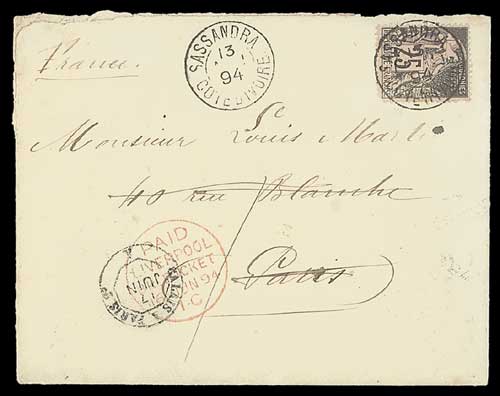 SASSANDRA
13
94
COTE D'IVOIRE
SASSANDRA
25
94
France.
Monsieur Louis
40 rue Blanche
Paris
PAID
LIVERPOOL
PACKET
94
CALAIS A PARIS
17
JUIN